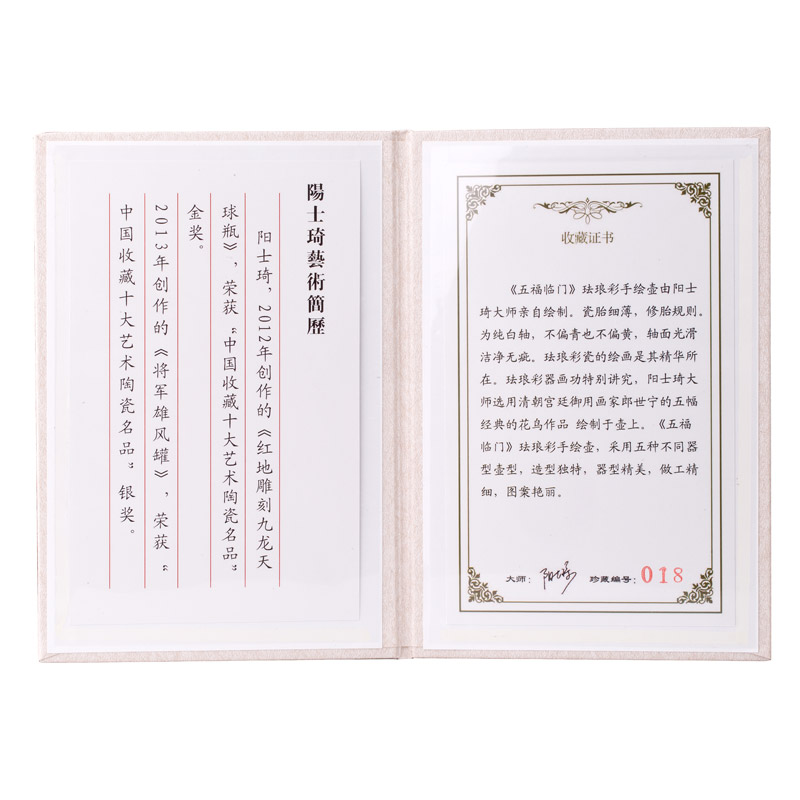 陽士琦藝術簡歷
阳士琦，2012年创作的《红地雕刻九龙天
球瓶》，荣获“中国收藏十大艺术陶瓷名品”
金奖。
2013年创作的《将军雄风罐》，荣获“
中国收藏十大艺术陶瓷名品”银奖。
收藏证书
《五福临门》珐琅彩手绘壶由阳士
琦大师亲自绘制。瓷胎细薄，修胎规则。
为纯白轴，不偏青也不偏黄，轴面光滑
洁净无疵。珐琅彩瓷的绘画是其精华所
在。珐琅彩器画功特别讲究，阳士琦大
师选用清朝宫廷御用画家郎世宁的五幅
经典的花鸟作品 绘制于壶上。《五福
临门》珐琅彩手绘壶，采用五种不同器
型壶型，造型独特，器型精美，做工精
细，图案艳丽。
大师：阳士琦 珍藏编号：018